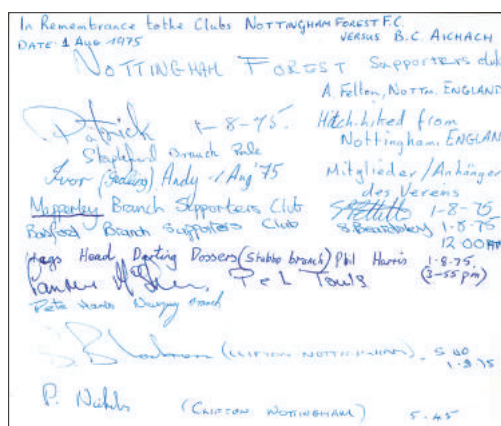 In Remembrance to the Clubs NOTTINGHAM FOREST F.C.
DATE: 1 Aug 1975 VERSUS B.C. AICHACH
NOTTINGHAM FOREST Supporters club
A. Felton, NOTTM. ENGLAND
Hitch-hiked from
Nottingham, ENGLAND
Patrick 1-8-75.
Stapleford Branch
Ivor (Gedling) Andy 1 Aug '75
Mitglieder/Anhänger
des Vereins
Mapperley Branch Supporters Club
1-8-75
Basford Branch Supporters Club
S. Beardsley 1-8-75
12.00
Nags Head Darting Dossers (Stabbo branch) Phil Harris 1-8-75.
(3-55 pm)
Pete Branch
(CLIFTON NOTTINGHAM). 5.00
1-8-75
P. Nichols (CLIFTON NOTTINGHAM) 5.45